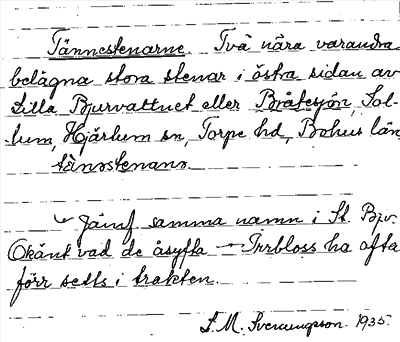 Tännestenarne. Två nära varandra
belägna stora stenar i östra sidan av
Lilla Bjurvattnet eller Bråtesjön, Sol-
lum, Hjärtum sn, Torpe hd, Bohus län,
tännstenana.
Jämf samma namn i St. Bjv.
Okänt vad de åsyfta — Irrbloss ha ofta
förr setts i trakten.
S. M. Svenungsson. 1935.